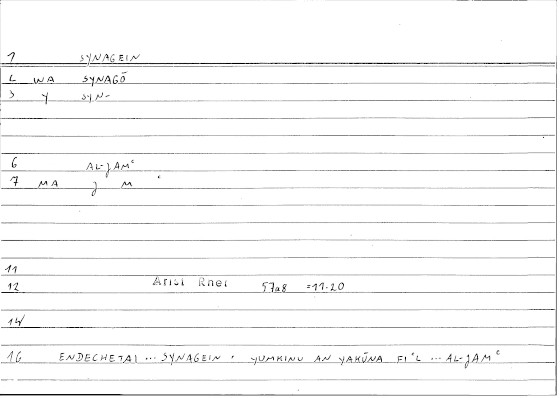 1 SYNAGEIN
L WA SYNAGŌ
S Y SYN-
6 AL-JAMʿ
7 MA J M ʿ
11
12 Arist Rhet 57a8 =11.20
14
16 ENDECHETAI ... SYNAGEIN · YUMKINU AN YAKŪNA FIʿL ... AL-JAMʿ